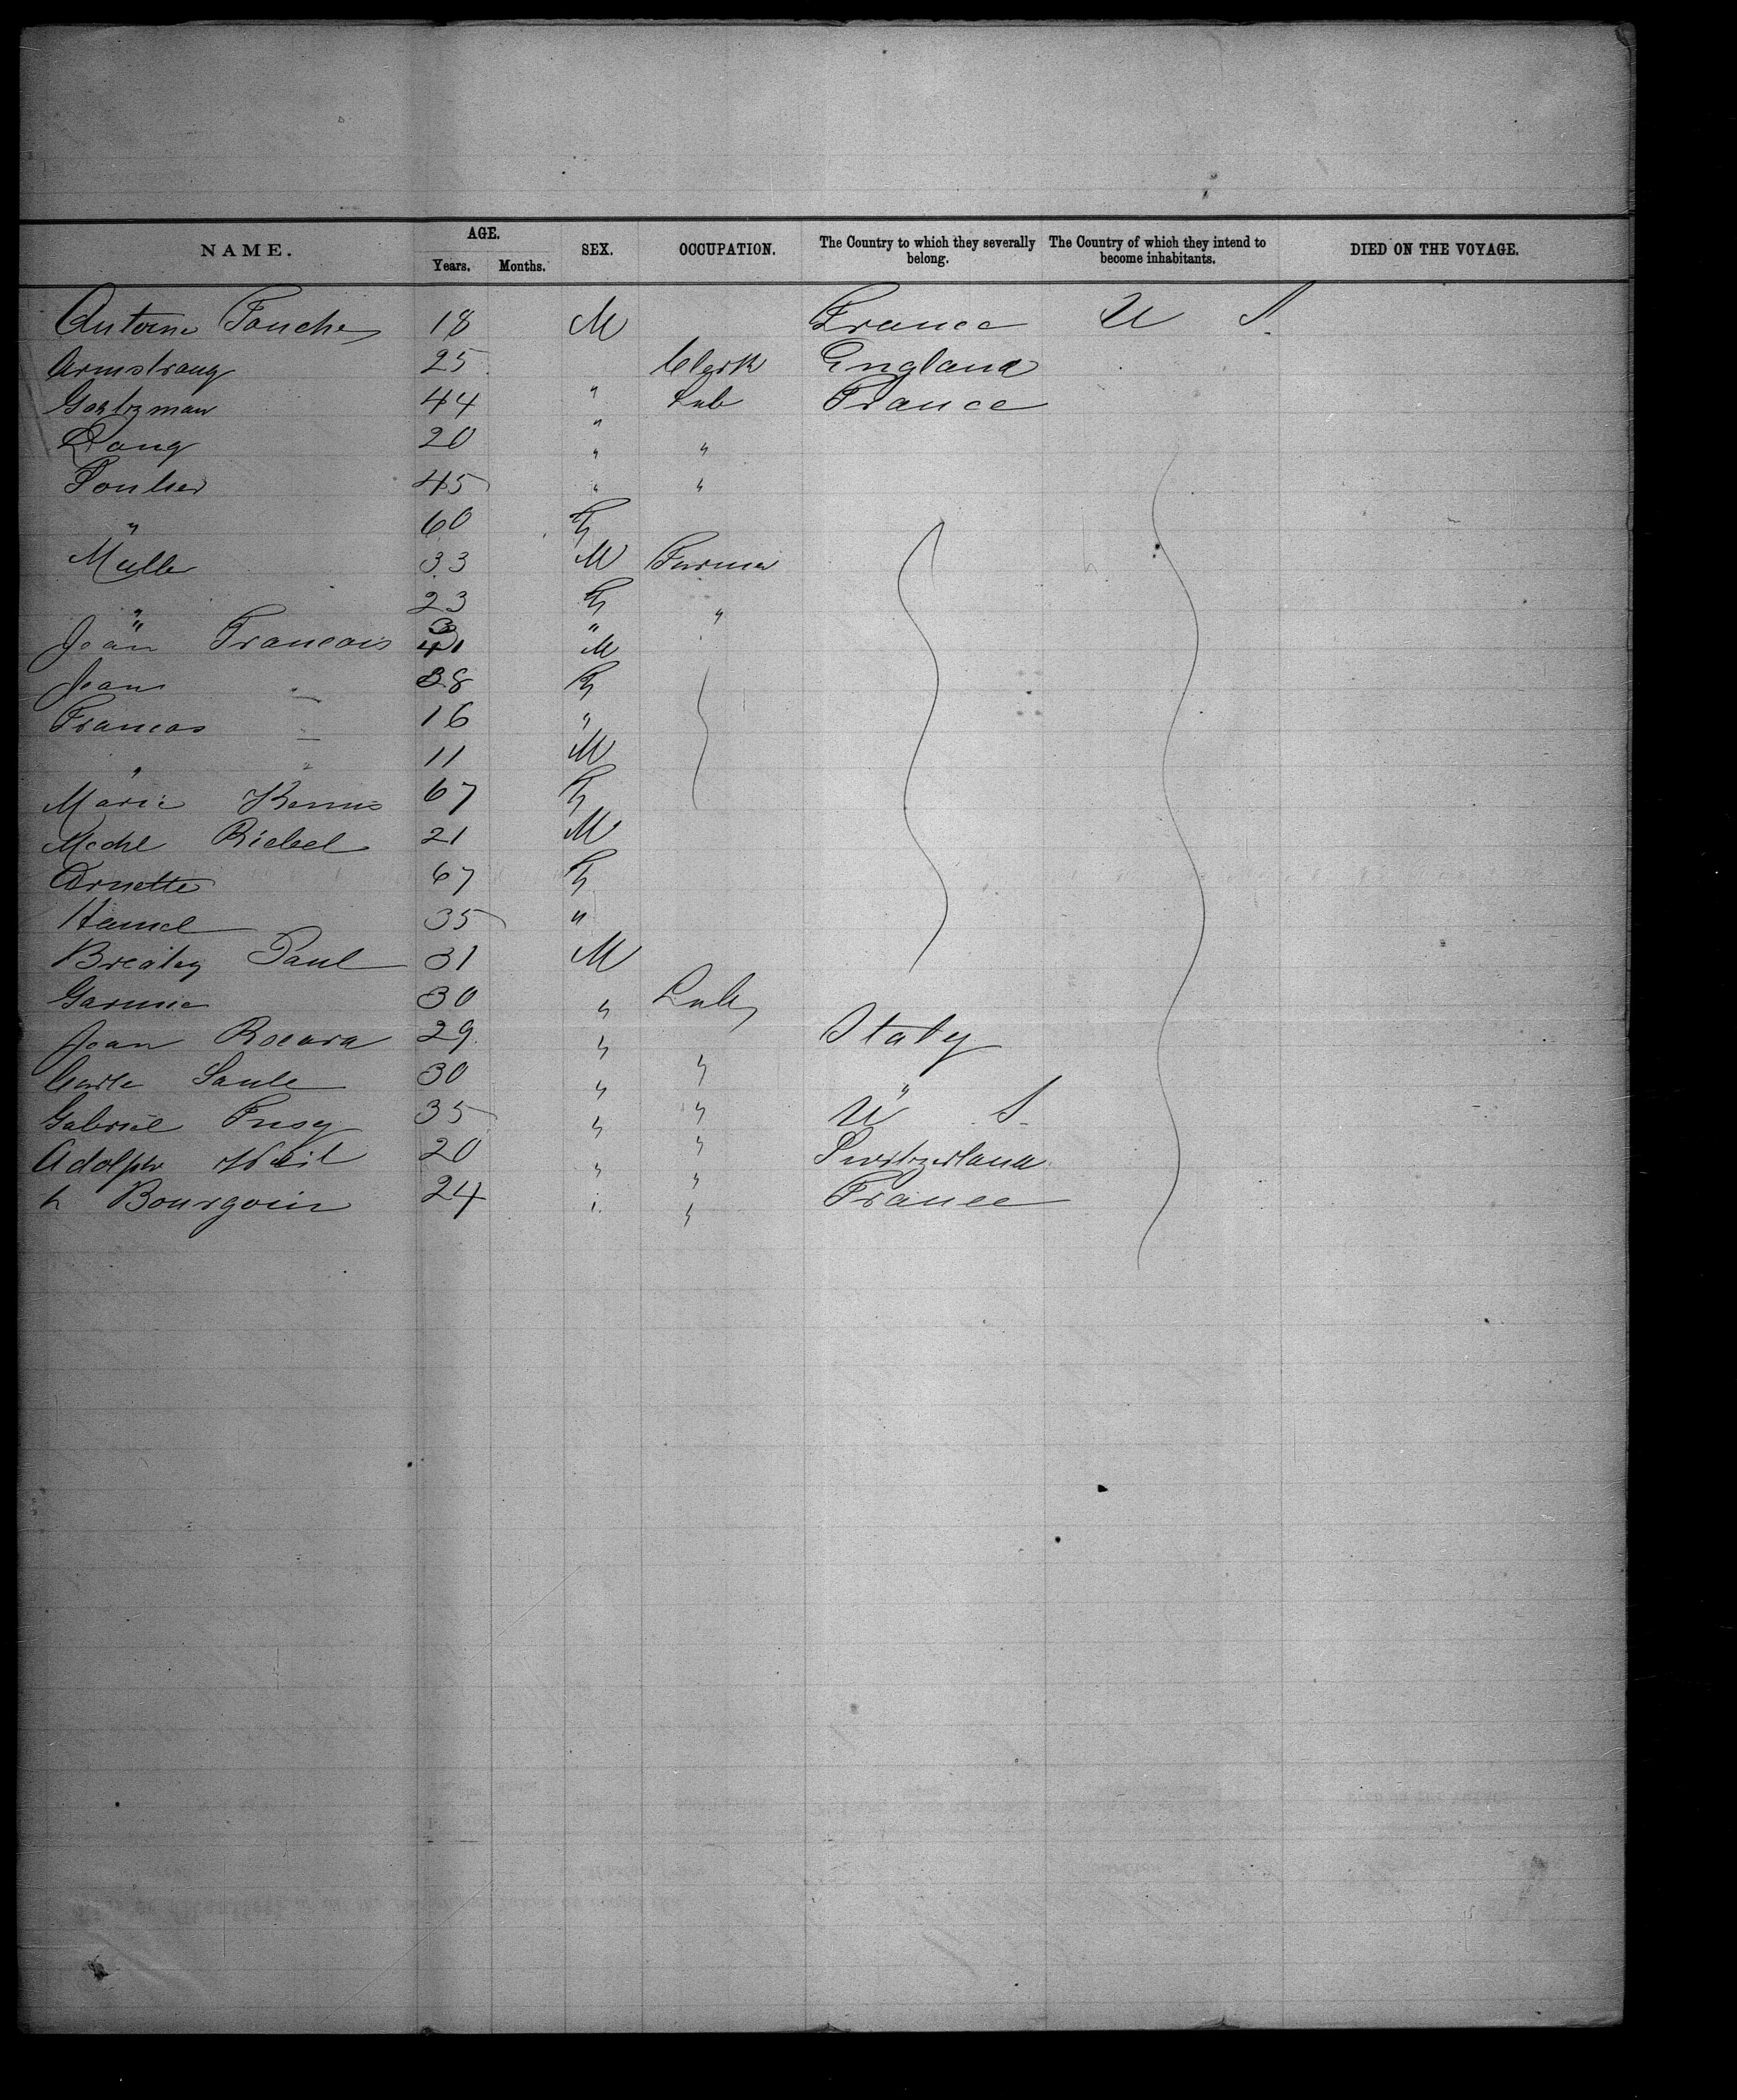 NAME. AGE. Years. Months. SEX. OCCUPATION. The Country to which they severally belong. The Country of which they intend to become inhabitants. DIED ON THE VOYAGE.
Antoine Fouche 18 M France U S
Armstrong 25 Clerk England
Goetzman 44 " Lab France
Lang 20 " "
45 " "
" 60 F
Mulle 33 M Farmer
" 23 F "
" 3 "
Jean Francois 41 M
Jean " 38 F
Francas " 16 "
" " 11 M
Marie 67 F
Mechl Riebel 21 M
Arnette 67 F
Hamel 35 "
Brealey Paul 31 M
Garmie 30 " Lab
Jean Rocara 29 " " Italy
Carle Saule 30 " " "
Gabriel 35 " " U S
Adolph Weil 20 " " Switzerland
L Bourgoin 24 " " France